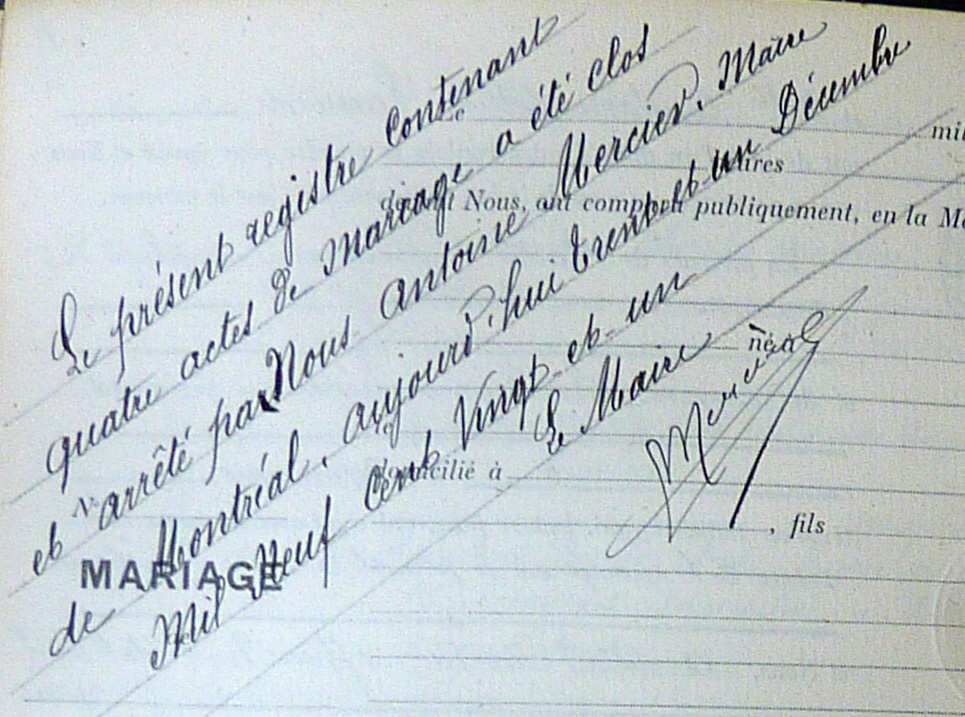 Le présent registre contenant
quatre actes de Mariage a été clos
et arrêté par Nous Antoine Mercier, Maire
de Montréal, aujourd'hui trente et un Décembre
Mil Neuf Cent Vingt et un
Le Maire
Mercier
mil
Nous, ont comparu publiquement, en la M
né à
domicilié à
, fils
MARIAGE